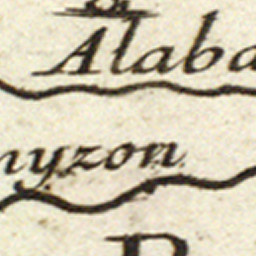 Alaba
nyzon